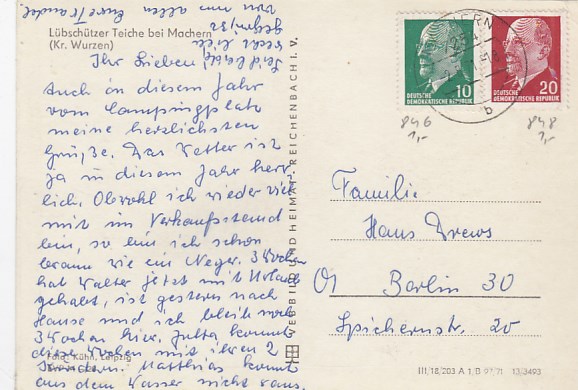 von allen Eure Traudel
gegrüßt
Seid
Lübschützer Teiche bei Machern
(Kr. Wurzen)
Ihr Lieben!
Auch in diesem Jahr
vom Campingplatz
meine herzlichsten
Grüße. Das Wetter ist
ja in diesem Jahr herr
lich. Obwohl ich wieder viel
mit im Verkaufsstand
bin, so bin ich schon
braun wie ein Neger. 3 Wochen
hat Walter jetzt mit Urlaub
gehabt, ist gestern nach
Hause und ich bleib noch
3 Wochen hier. Jutta kommt
diese Wochen mit ihren 2
Kindern. Matthias kommt
aus dem Wasser nicht raus.
Foto: Kühn, Leipzig
BILD UND HEIMAT · REICHENBACH i. V.
10
DEUTSCHE
DEMOKRATISCHE REPUBLIK
20
DEUTSCHE
DEMOKRATISCHE REPUBLIK
b
846
1,-
848
1,-
Familie
Hans Drews
Berlin 30
Spichernstr. 20
III/18/203 A 1/B 97/71 13/3493